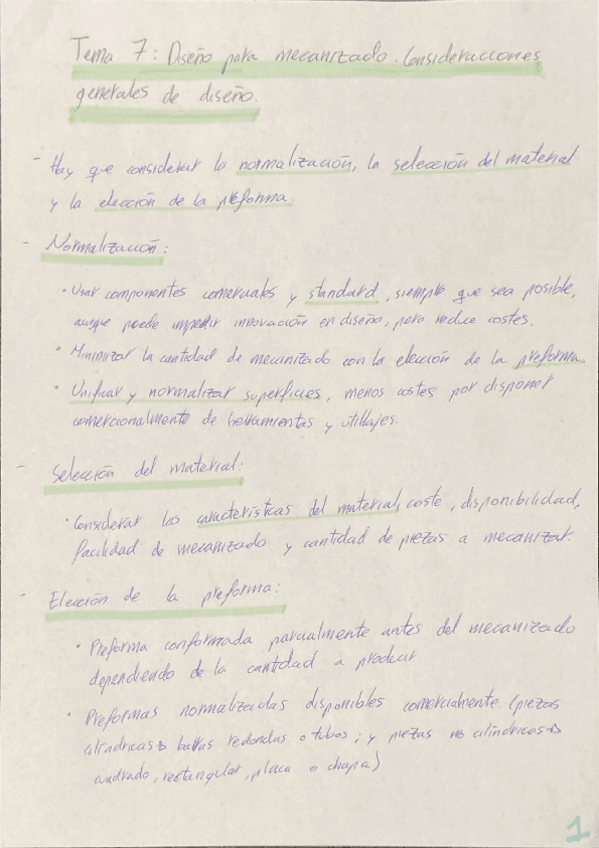 Tema 7: Diseño para mecanizado. Consideraciones
generales de diseño.
- Hay que considerar la normalización, la selección del material
y la elección de la preforma.
- Normalización:
• Usar componentes comerciales y standard, siempre que sea posible,
aunque puede impedir innovación en diseño, pero reduce costes.
• Minimizar la cantidad de mecanizado con la elección de la preforma
• Unificar y normalizar superficies, menos costes por disponer
comercialmente de herramientas y utillajes.
- Selección del material:
• Considerar las características del material, coste, disponibilidad,
facilidad de mecanizado y cantidad de piezas a mecanizar
- Elección de la preforma:
• Preforma conformada parcialmente antes del mecanizado
dependiendo de la cantidad a producir
• Preformas normalizadas disponibles comercialmente (piezas
cilíndricas → barras redondas o tubos; y piezas no cilíndricas →
cuadrado, rectangular, placa o chapa)
1